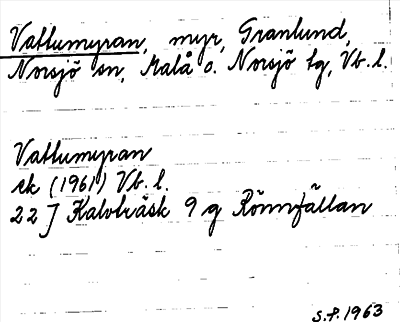 Vattumyran, myr, Granlund,
Norsjö sn, Malå o. Norsjö tg, Vb. l.
Vattumyran
ek (1961) Vb. l.
22 J Kalvträsk 9 g Rönnfällan
S.F. 1963